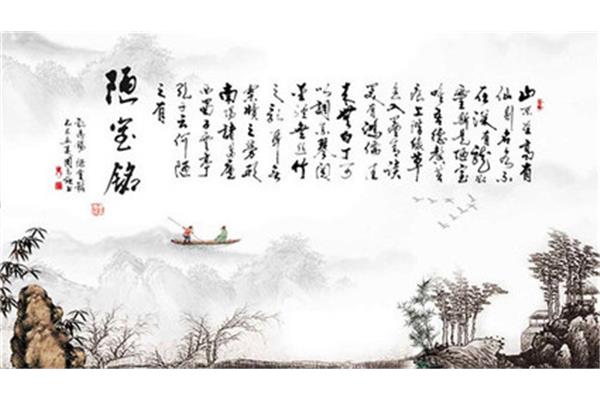 山不在高有
仙则名水不
在深有龙则
灵斯是陋室
唯吾德馨苔
痕上阶绿草
色入帘青谈
笑有鸿儒往
来无白丁可
以调素琴阅
金经无丝竹
之乱耳无
案牍之劳形
南阳诸葛庐
西蜀子云亭
孔子云何陋
之有
陋室铭
刘禹锡 陋室铭